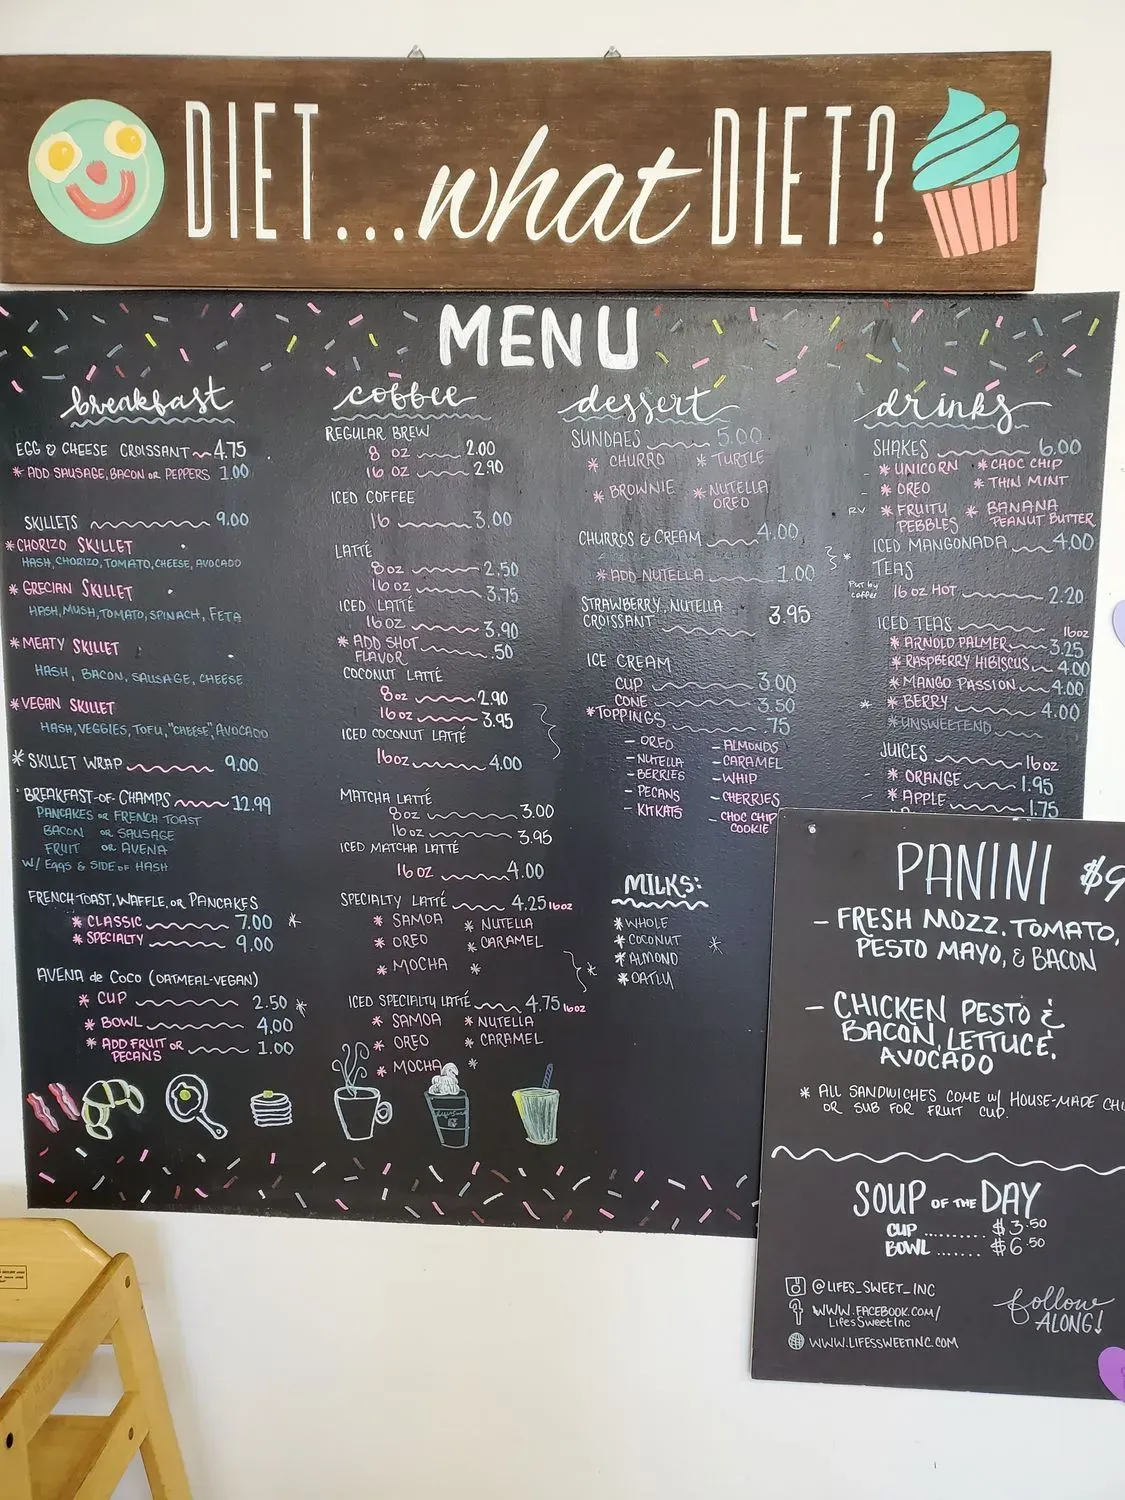 DIET...what DIET?
MENU
breakfast
EGG & CHEESE CROISSANT 4.75
* ADD SAUSAGE, BACON OR PEPPERS 1.00
SKILLETS 9.00
* CHORIZO SKILLET
HASH, CHORIZO, TOMATO, CHEESE, AVOCADO
* GRECIAN SKILLET
HASH, MUSH, TOMATO, SPINACH, FETA
* MEATY SKILLET
HASH, BACON, SAUSAGE, CHEESE
* VEGAN SKILLET
HASH, VEGGIES, TOFU, "CHEESE", AVOCADO
* SKILLET WRAP 9.00
BREAKFAST-OF-CHAMPS 12.99
PANCAKES OR FRENCH TOAST
BACON OR SAUSAGE
FRUIT OR AVENA
W/ EGGS & SIDE OF HASH
FRENCH TOAST, WAFFLE, OR PANCAKES
* CLASSIC 7.00 *
* SPECIALTY 9.00
AVENA de COCO (OATMEAL-VEGAN)
* CUP 2.50 *
* BOWL 4.00
* ADD FRUIT OR 1.00
PECANS
coffee
REGULAR BREW
8 OZ 2.00
16 OZ 2.90
ICED COFFEE
16 3.00
LATTÉ
8oz 2.50
16oz 3.75
ICED LATTÉ
16oz 3.90
* ADD SHOT
FLAVOR .50
COCONUT LATTÉ
8oz 2.90
16oz 3.95
ICED COCONUT LATTÉ
16oz 4.00
MATCHA LATTÉ
8oz 3.00
16oz 3.95
ICED MATCHA LATTÉ
16OZ 4.00
SPECIALTY LATTÉ 4.25 16oz
* SAMOA * NUTELLA
* OREO * CARAMEL
* MOCHA *
ICED SPECIALTY LATTÉ 4.75 16oz
* SAMOA * NUTELLA
* OREO * CARAMEL
* MOCHA *
dessert
SUNDAES 5.00
* CHURRO * TURTLE
* BROWNIE * NUTELLA
OREO
CHURROS & CREAM 4.00
* ADD NUTELLA 1.00
STRAWBERRY, NUTELLA
CROISSANT 3.95
ICE CREAM
CUP 3.00
CONE 3.50
* TOPPINGS .75
- OREO - ALMONDS
- NUTELLA - CARAMEL
- BERRIES - WHIP
- PECANS - CHERRIES
- KITKATS - CHOC CHIP
COOKIE
MILKS:
* WHOLE
* COCONUT
* ALMOND
* OATLY
drinks
SHAKES 6.00
* UNICORN * CHOC CHIP
* OREO * THIN MINT
RV * FRUITY * BANANA
PEBBLES PEANUT BUTTER
ICED MANGONADA 4.00
TEAS
Put by
coffee 16 OZ HOT 2.20
ICED TEAS 16oz
* ARNOLD PALMER 3.25
* RASPBERRY HIBISCUS 4.00
* MANGO PASSION 4.00
* BERRY 4.00
* UNSWEETEND
JUICES 16oz
* ORANGE 1.95
* APPLE 1.75
PANINI $9
- FRESH MOZZ. TOMATO,
PESTO MAYO, & BACON
- CHICKEN PESTO &
BACON, LETTUCE,
AVOCADO
* ALL SANDWICHES COME W/ HOUSE-MADE CHI
OR SUB FOR FRUIT CUP.
SOUP OF THE DAY
CUP .......... $3.50
BOWL ....... $6.50
@LIFES_SWEET_INC
WWW.FACEBOOK.COM/
LifesSweetInc
WWW.LIFESSWEETINC.COM
follow
ALONG!